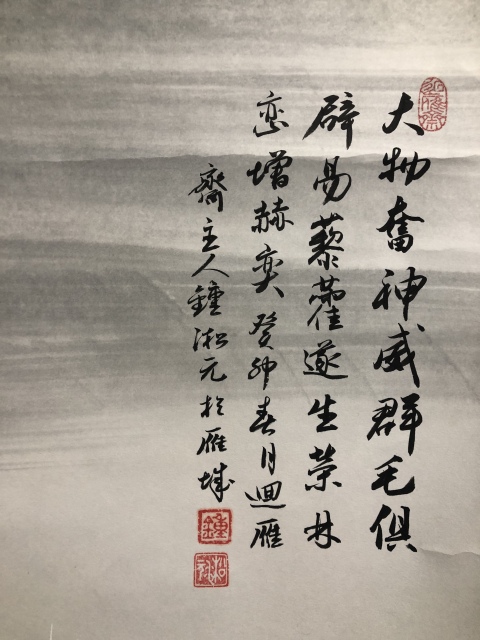 大物奮神威群毛俱
辟易藜藿遂生榮林
峦增赫奕癸卯春月迴雁
齋主人鐘淞元於雁城